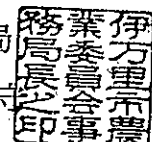 伊万里市農
業委員会事
務局長之印
局